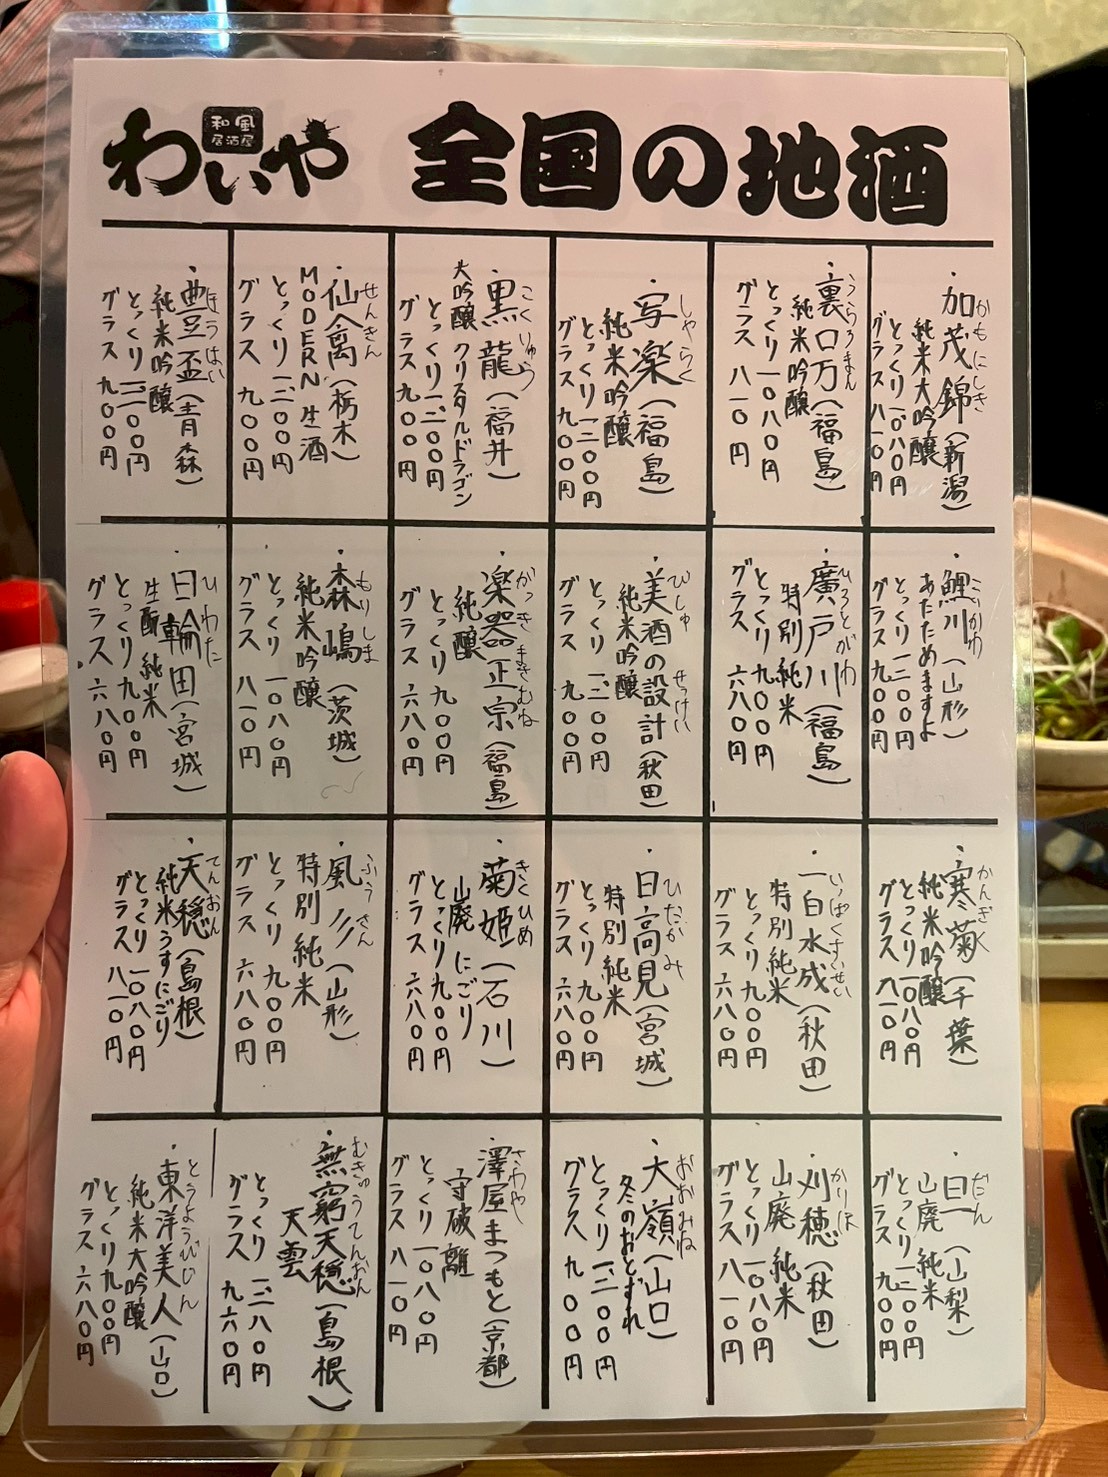 和風
居酒屋
わいや
全国の地酒
・加茂錦(新潟)
かもにしき
純米大吟醸
とっくり 一、〇八〇円
グラス 八一〇円
・裏ロ万(福島)
うらろまん
純米吟醸
とっくり 一〇八〇円
グラス 八一〇円
・写楽(福島)
しゃらく
純米吟醸
とっくり 一二〇〇円
グラス 九〇〇円
・黒龍(福井)
こくりゅう
大吟醸 クリスタルドラゴン
とっくり 一、二〇〇円
グラス 九〇〇円
・仙禽(栃木)
せんきん
MODERN 生酒
とっくり 一、二〇〇円
グラス 九〇〇円
・豊盃(青森)
ほうはい
純米吟醸
とっくり 一、二〇〇円
グラス 九〇〇円
・鯉川(山形)
こいかわ
あたためますよ
とっくり 一二〇〇円
グラス 九〇〇円
・廣戸川(福島)
ひろとがわ
特別純米
とっくり 九〇〇円
グラス 六八〇円
・美酒の設計(秋田)
びしゅ せっけい
純米吟醸
とっくり 一、二〇〇円
グラス 九〇〇円
・楽器正宗(福島)
がっきまさむね
純醸
とっくり 九〇〇円
グラス 六八〇円
・森嶋(茨城)
もりしま
純米吟醸
とっくり 一〇八〇円
グラス 八一〇円
・日輪田(宮城)
ひわた
生酛 純米
とっくり 九〇〇円
グラス 六八〇円
・寒菊(千葉)
かんぎく
純米吟醸
とっくり 一〇八〇円
グラス 八一〇円
・一白水成(秋田)
いっぱくすいせい
特別純米
とっくり 九〇〇円
グラス 六八〇円
・日高見(宮城)
ひだかみ
特別純米
とっくり 九〇〇円
グラス 六八〇円
・菊姫(石川)
きくひめ
山廃 にごり
とっくり 九〇〇円
グラス 六八〇円
・風ノ彡(山形)
ふうさん
特別純米
とっくり 九〇〇円
グラス 六八〇円
・天穏(島根)
てんおん
純米うすにごり
とっくり 一〇八〇円
グラス 八一〇円
・旦(山梨)
だん
山廃 純米
とっくり 一、二〇〇円
グラス 九〇〇円
・刈穂(秋田)
かりほ
山廃 純米
とっくり 一〇八〇円
グラス 八一〇円
・大嶺(山口)
おおみね
冬のおとずれ
とっくり 一、二〇〇円
グラス 九〇〇円
・澤屋まつもと(京都)
さわや
守破離
とっくり 一〇八〇円
グラス 八一〇円
・無窮天穏(島根)
むきゅうてんおん
天雲
とっくり 一、二八〇円
グラス 九六〇円
・東洋美人(山口)
とうようびじん
純米大吟醸
とっくり 九〇〇円
グラス 六八〇円